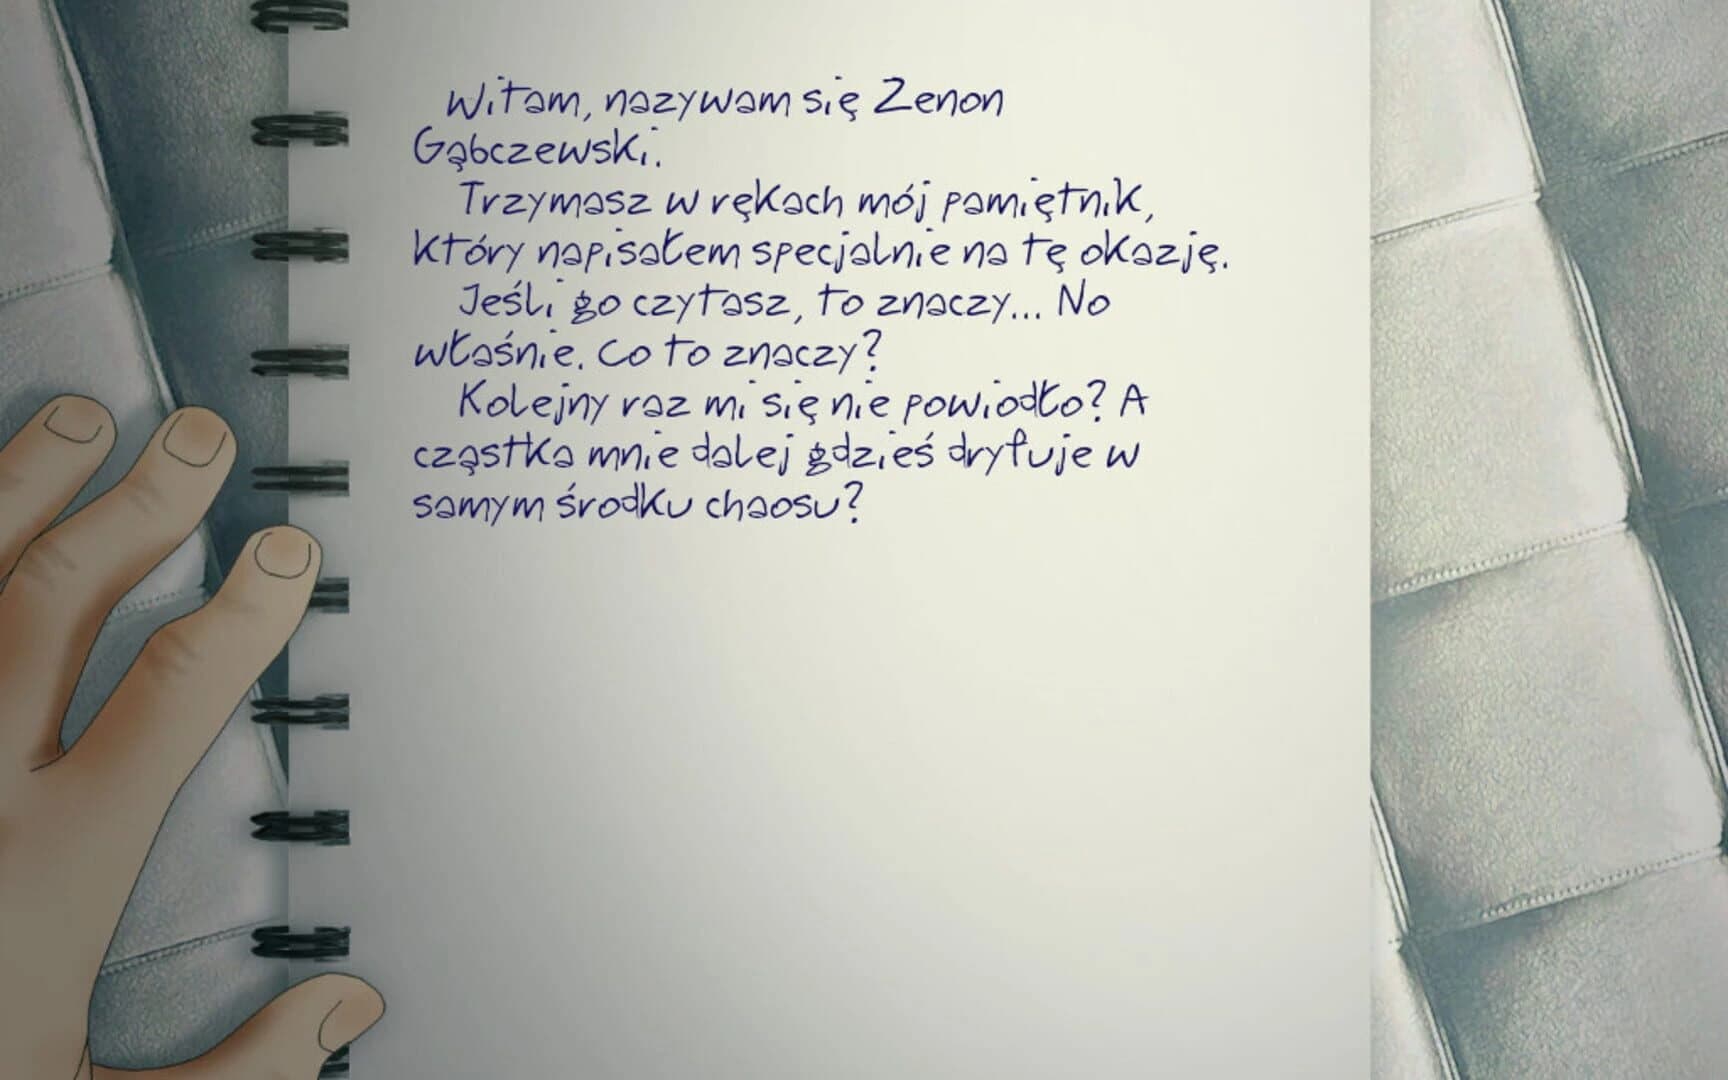 Witam, nazywam się Zenon
Gąbczewski.
Trzymasz w rękach mój pamiętnik,
który napisałem specjalnie na tę okazję.
Jeśli go czytasz, to znaczy... No
właśnie. Co to znaczy?
Kolejny raz mi się nie powiodło? A
cząstka mnie dalej gdzieś dryfuje w
samym środku chaosu?